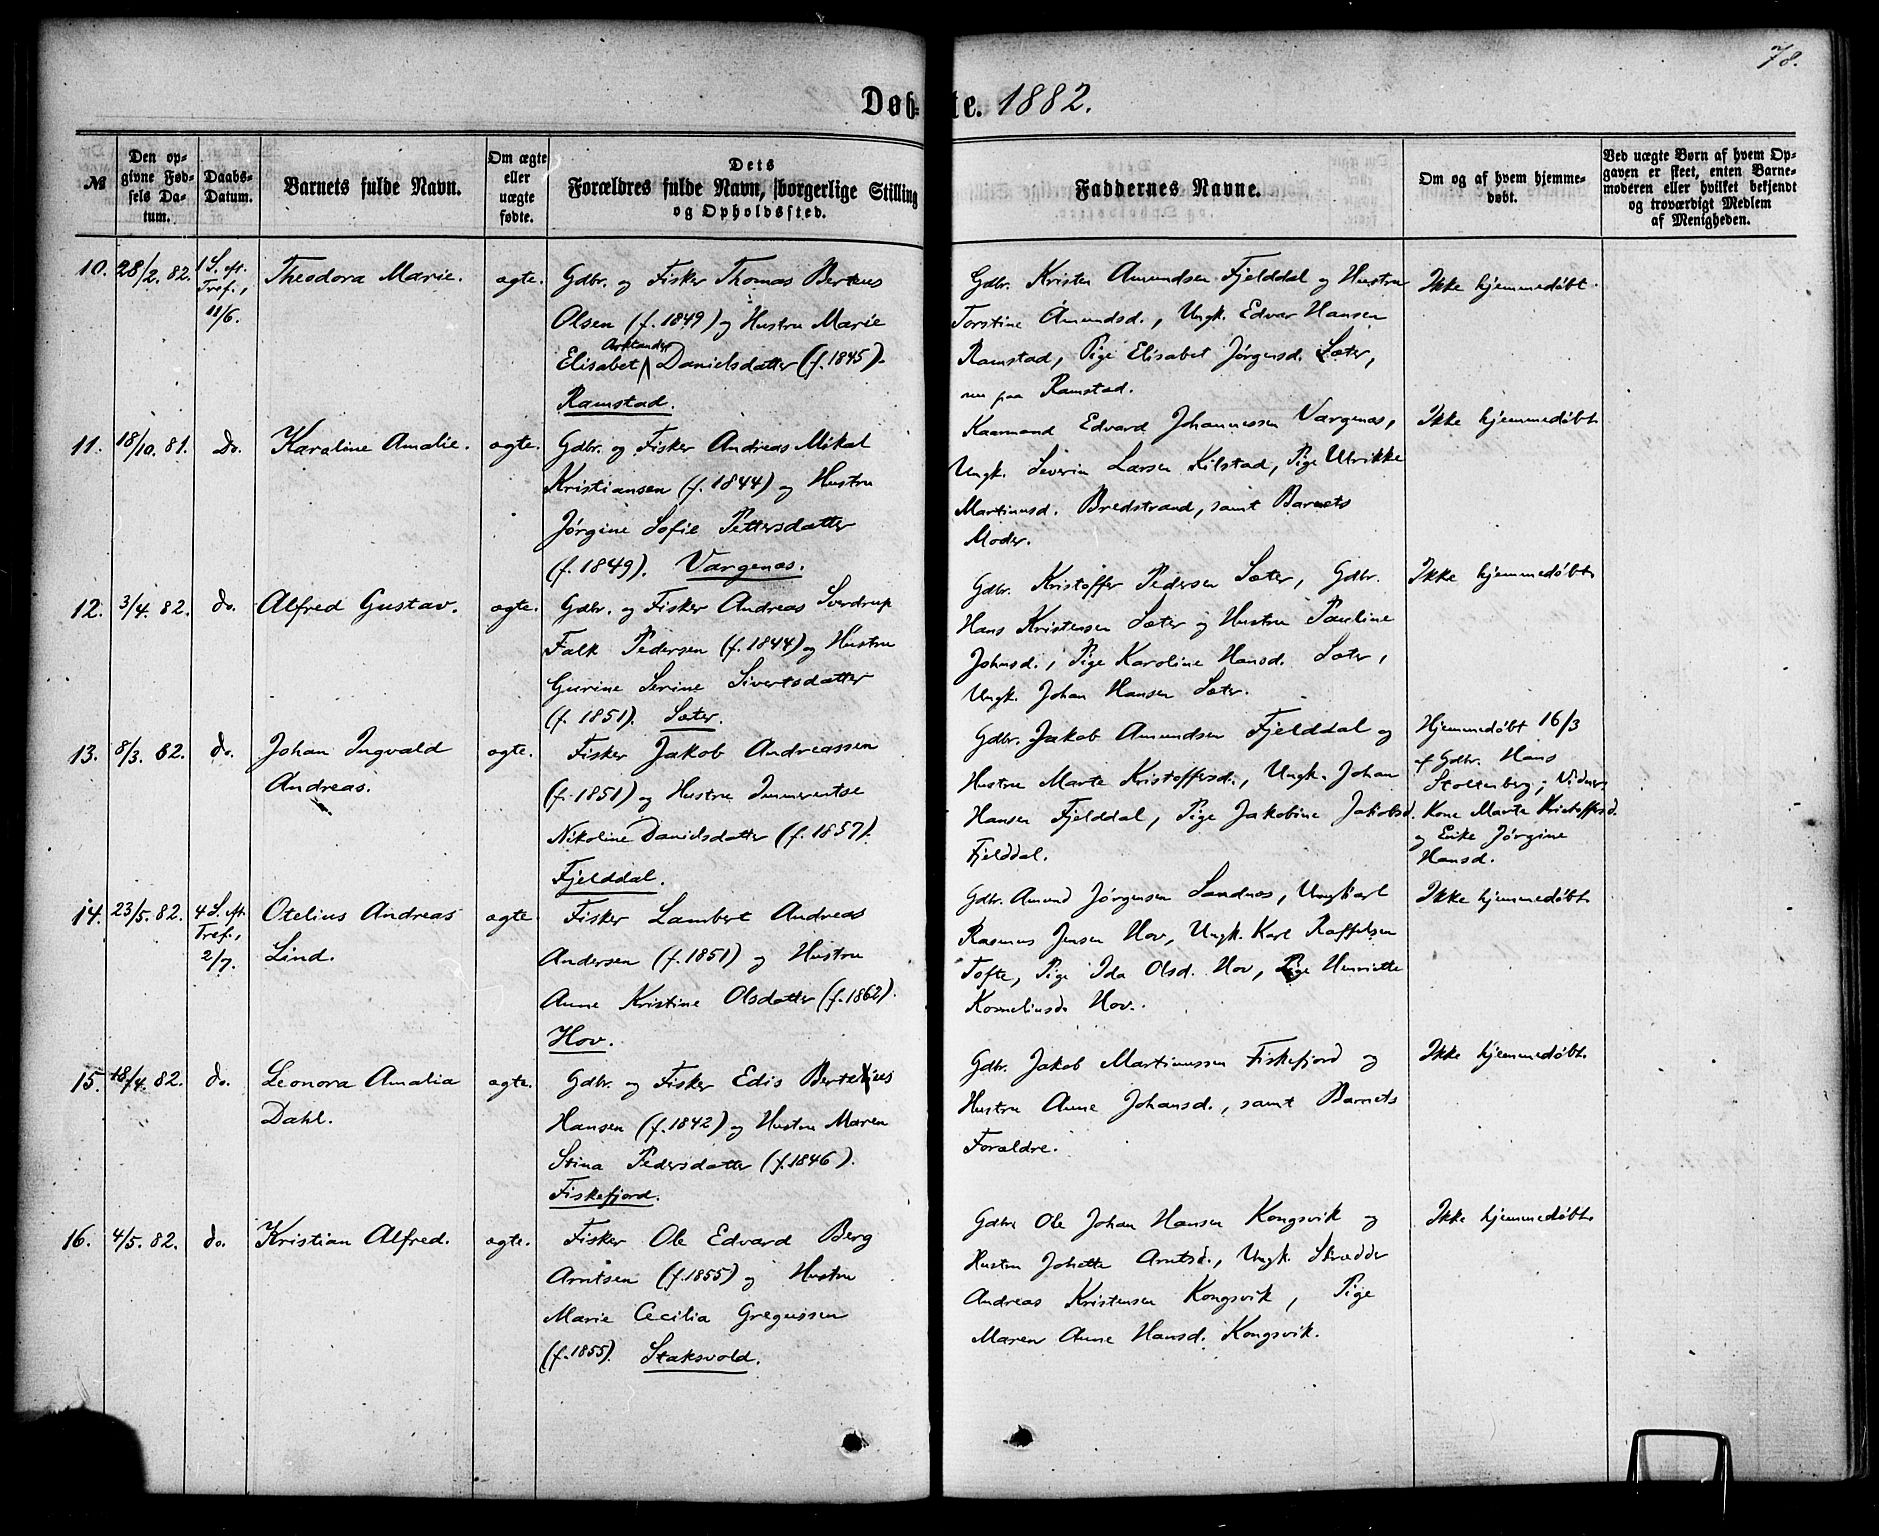 78.
Døbte. 1882.
№
Den opgivne Fødsels Datum.
Daabs-Datum.
Barnets fulde Navn.
Om ægte eller uægte fødte.
Dets Forældres fulde Navn, borgerlige Stilling og Opholdssted.
Faddernes Navne.
Om og af hvem hjemmedøbt.
Ved uægte Børn af hvem Opgaven er skeet, enten Barnemoderen eller hvilket bekjendt og troværdigt Medlem af Menigheden.
10. 28/2. 82. 1 S. eft. Tref., 11/6. Theodora Marie. ægte.
Gdbr. og Fisker Thomas Berteus
Olsen (f. 1849) og Hustru Marie
Elisabet Arktander Danielsdatter (f. 1845).
Ramstad.
Gdbr. Kristen Amundsen Fjelddal og Hustru
Torstine Amundsd., Ungk. Edvar Hansen
Ramstad, Pige Elisabet Jørgensd. Sæter,
nu paa Ramstad.
Ikke hjemmedøbt.
11. 18/10. 81. Do. Karoline Amalie. ægte.
Gdbr. og Fisker Andreas Mikal
Kristiansen (f. 1844) og Hustru
Jørgine Sofie Pettersdatter
(f. 1849). Vargenæs.
Kaarmand Edvard Johannessen Vargenæs,
Ungk. Severin Larsen Kilstad, Pige Ulrikke
Martinusd. Bredstrand, samt Barnets
Moder.
Ikke hjemmedøbt.
12. 3/4. 82. do. Alfred Gustav. ægte.
Gdbr. og Fisker Andreas Sverdrup
Falk Pedersen (f. 1844) og Hustru
Gurine Serine Sivertsdatter
(f. 1851). Sæter.
Gdbr. Kristoffer Pedersen Sæter, Gdbr.
Hans Kristensen Sæter og Hustru Pauline
Johnsd., Pige Karoline Hansd. Sæter,
Ungk. Johan Hansen Sæter.
Ikke hjemmedøbt.
13. 8/3. 82. do. Johan Ingvald
Andreas.
ægte.
Fisker Jakob Andreassen
(f. 1851) og Hustru Immerentse
Nikoline Danielsdatter (f. 1857).
Fjelddal.
Gdbr. Jakob Amundsen Fjelddal og
Hustru Marte Kristoffersd., Ungk. Johan
Hansen Fjelddal, Pige Jakobine Jakobsd.
Fjelddal.
Hjemmedøbt 16/3
af Gdbr. Hans
Stoltenberg; Vidner:
Kone Marte Kristoffersd.
og Enke Jørgine
Hansd.
14. 23/5. 82. 4 S. eft. Tref., 2/7. Otelius Andreas
Lind.
ægte
Fisker Lambert Andreas
Andersen (f. 1851) og Hustru
Anne Kristine Olsdatter (f. 1862).
Hov.
Gdbr. Amund Jørgensen Sandnæs, Ungkarl
Rasmus Jensen Hov, Ungk. Karl Raffelsen
Tofte, Pige Ida Olsd. Hov, Pige Henriette
Korneliusd. Hov.
Ikke hjemmedøbt.
15. 18/4. 82. do. Leonora Amalia
Dahl.
ægte.
Gdbr. og Fisker Edis Berteus
Hansen (f. 1842) og Hustru Maren
Stina Pedersdatter (f. 1846).
Fiskefjord.
Gdbr. Jakob Martinussen Fiskefjord og
Hustru Anne Johansd., samt Barnets
Forældre.
Ikke hjemmedøbt.
16. 4/5. 82. do. Kristian Alfred. ægte.
Fisker Ole Edvard Berg
Arntsen (f. 1855) og Hustru
Marie Cecilia Gregussen
(f. 1855). Staksvold.
Gdbr. Ole Johan Hansen Kongsvik og
Hustru Johette Arntsd., Ungk. Skrædder
Andreas Kristensen Kongsvik, Pige
Maren Anne Hansd. Kongsvik.
Ikke hjemmedøbt.